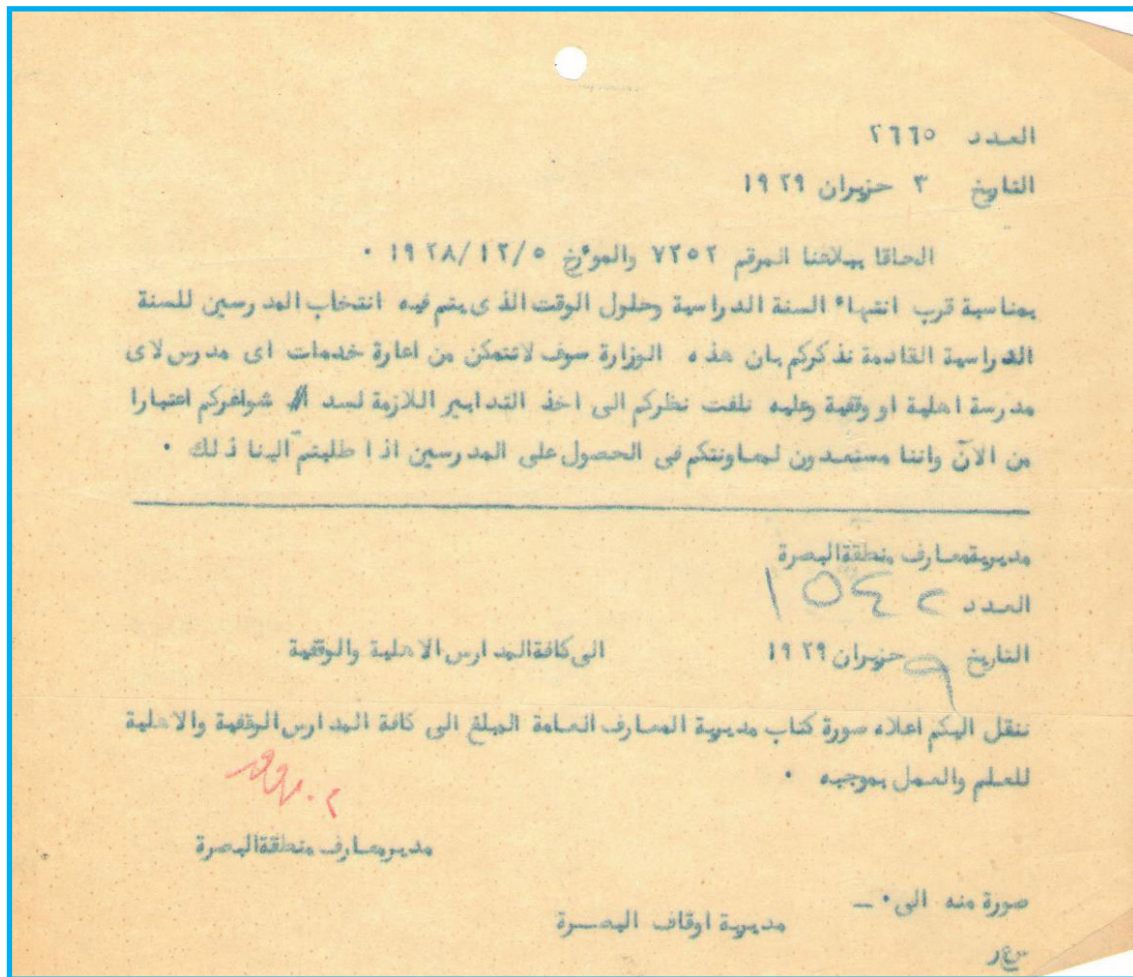 العدد ٢٦٦٥
التاريخ ٣ حزيران ١٩٢٩
الحاقا ببلاغنا المرقم ٧٢٥٢ والموءرخ ١٩٢٨/١٢/٥ ٠
بمناسبة قرب انتهاء السنة الدراسية وحلول الوقت الذى يتم فيه انتخاب المدرسين للسنة
الدراسية القادمة نذكركم بان هذه الوزارة سوف لاتتمكن من اعارة خدمات اى مدرس لاى
مدرسة اهلية او وقفية وعليه نلفت نظركم الى اخذ التدابير اللازمة لسد شواغركم اعتبارا
من الآن واننا مستعدون لمعاونتكم فى الحصول على المدرسين اذا طلبتم الينا ذلك ٠
مديريةمعارف منطقةالبصرة
العدد ١٥٤٢
التاريخ ٩ حزيران ١٩٢٩ الى كافةالمدارس الاهلية والوقفية
ننقل اليكم اعلاه صورة كتاب مديرية المعارف العامة المبلغ الى كافة المدارس الوقفية والاهلية
للعلم والعمل بموجبه ٠
مديرمعارف منطقةالبصرة
صورة منه الى ٠ ـ
مديرية اوقاف البصرة